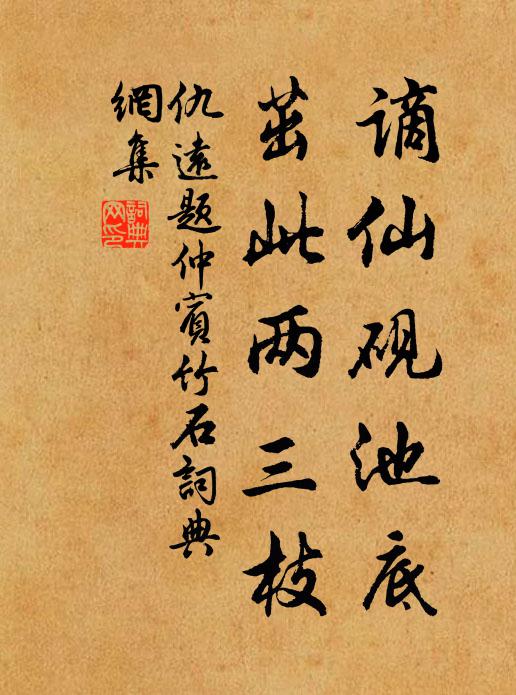 谪仙砚池底
茁此两三枝
仇远题仲宾竹石词典
网集
词典
网印